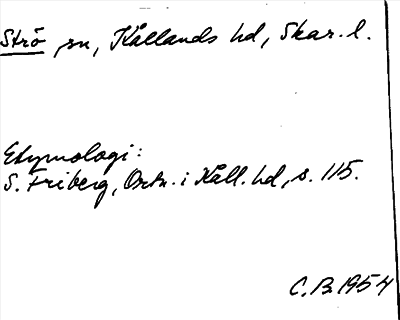 Strö, sn, Kållands hd, Skar. l.
Etymologi:
S. Friberg, Ortn. i Kåll. hd, s. 115.
C.B. 1954